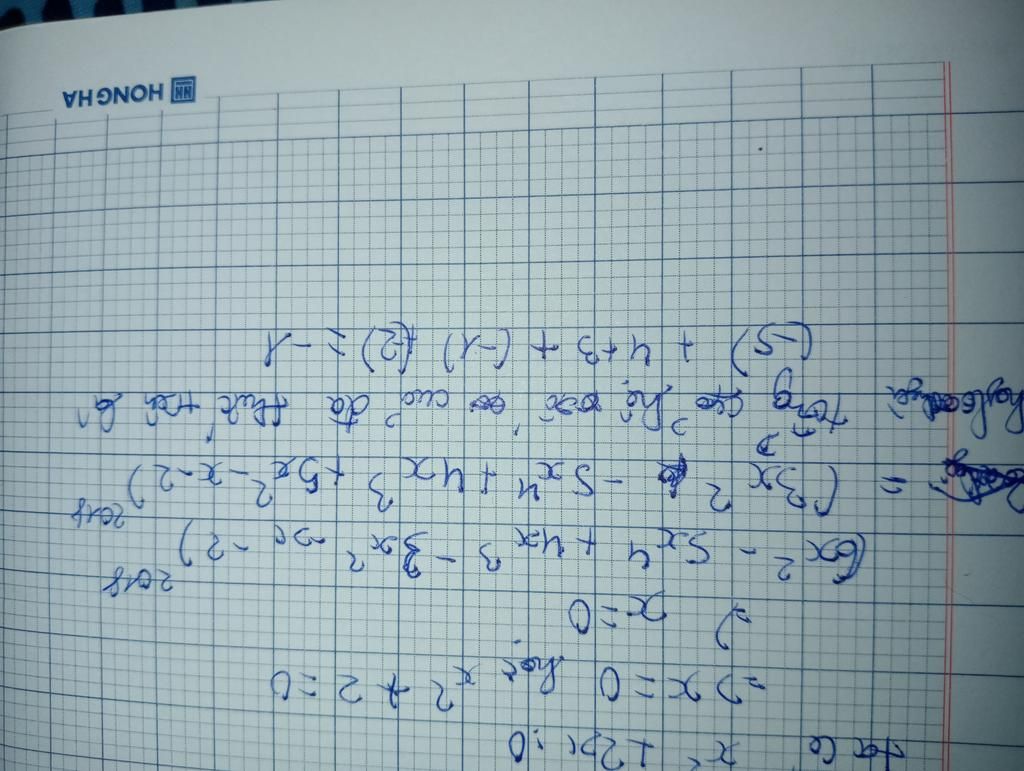 ta có x³ + 2x = 0
=> x = 0 hoặc x² + 2 = 0
=> x = 0
(6x² - 5x⁴ + 4x³ - 3x² - x - 2)²⁰¹⁸
= (3x² - 5x⁴ + 4x³ + 5x² - x - 2)²⁰¹⁸
tổng hệ số của đa thức trên là
(-5) + 4 + 3 + (-1) + (-2) = -1
HONG HA